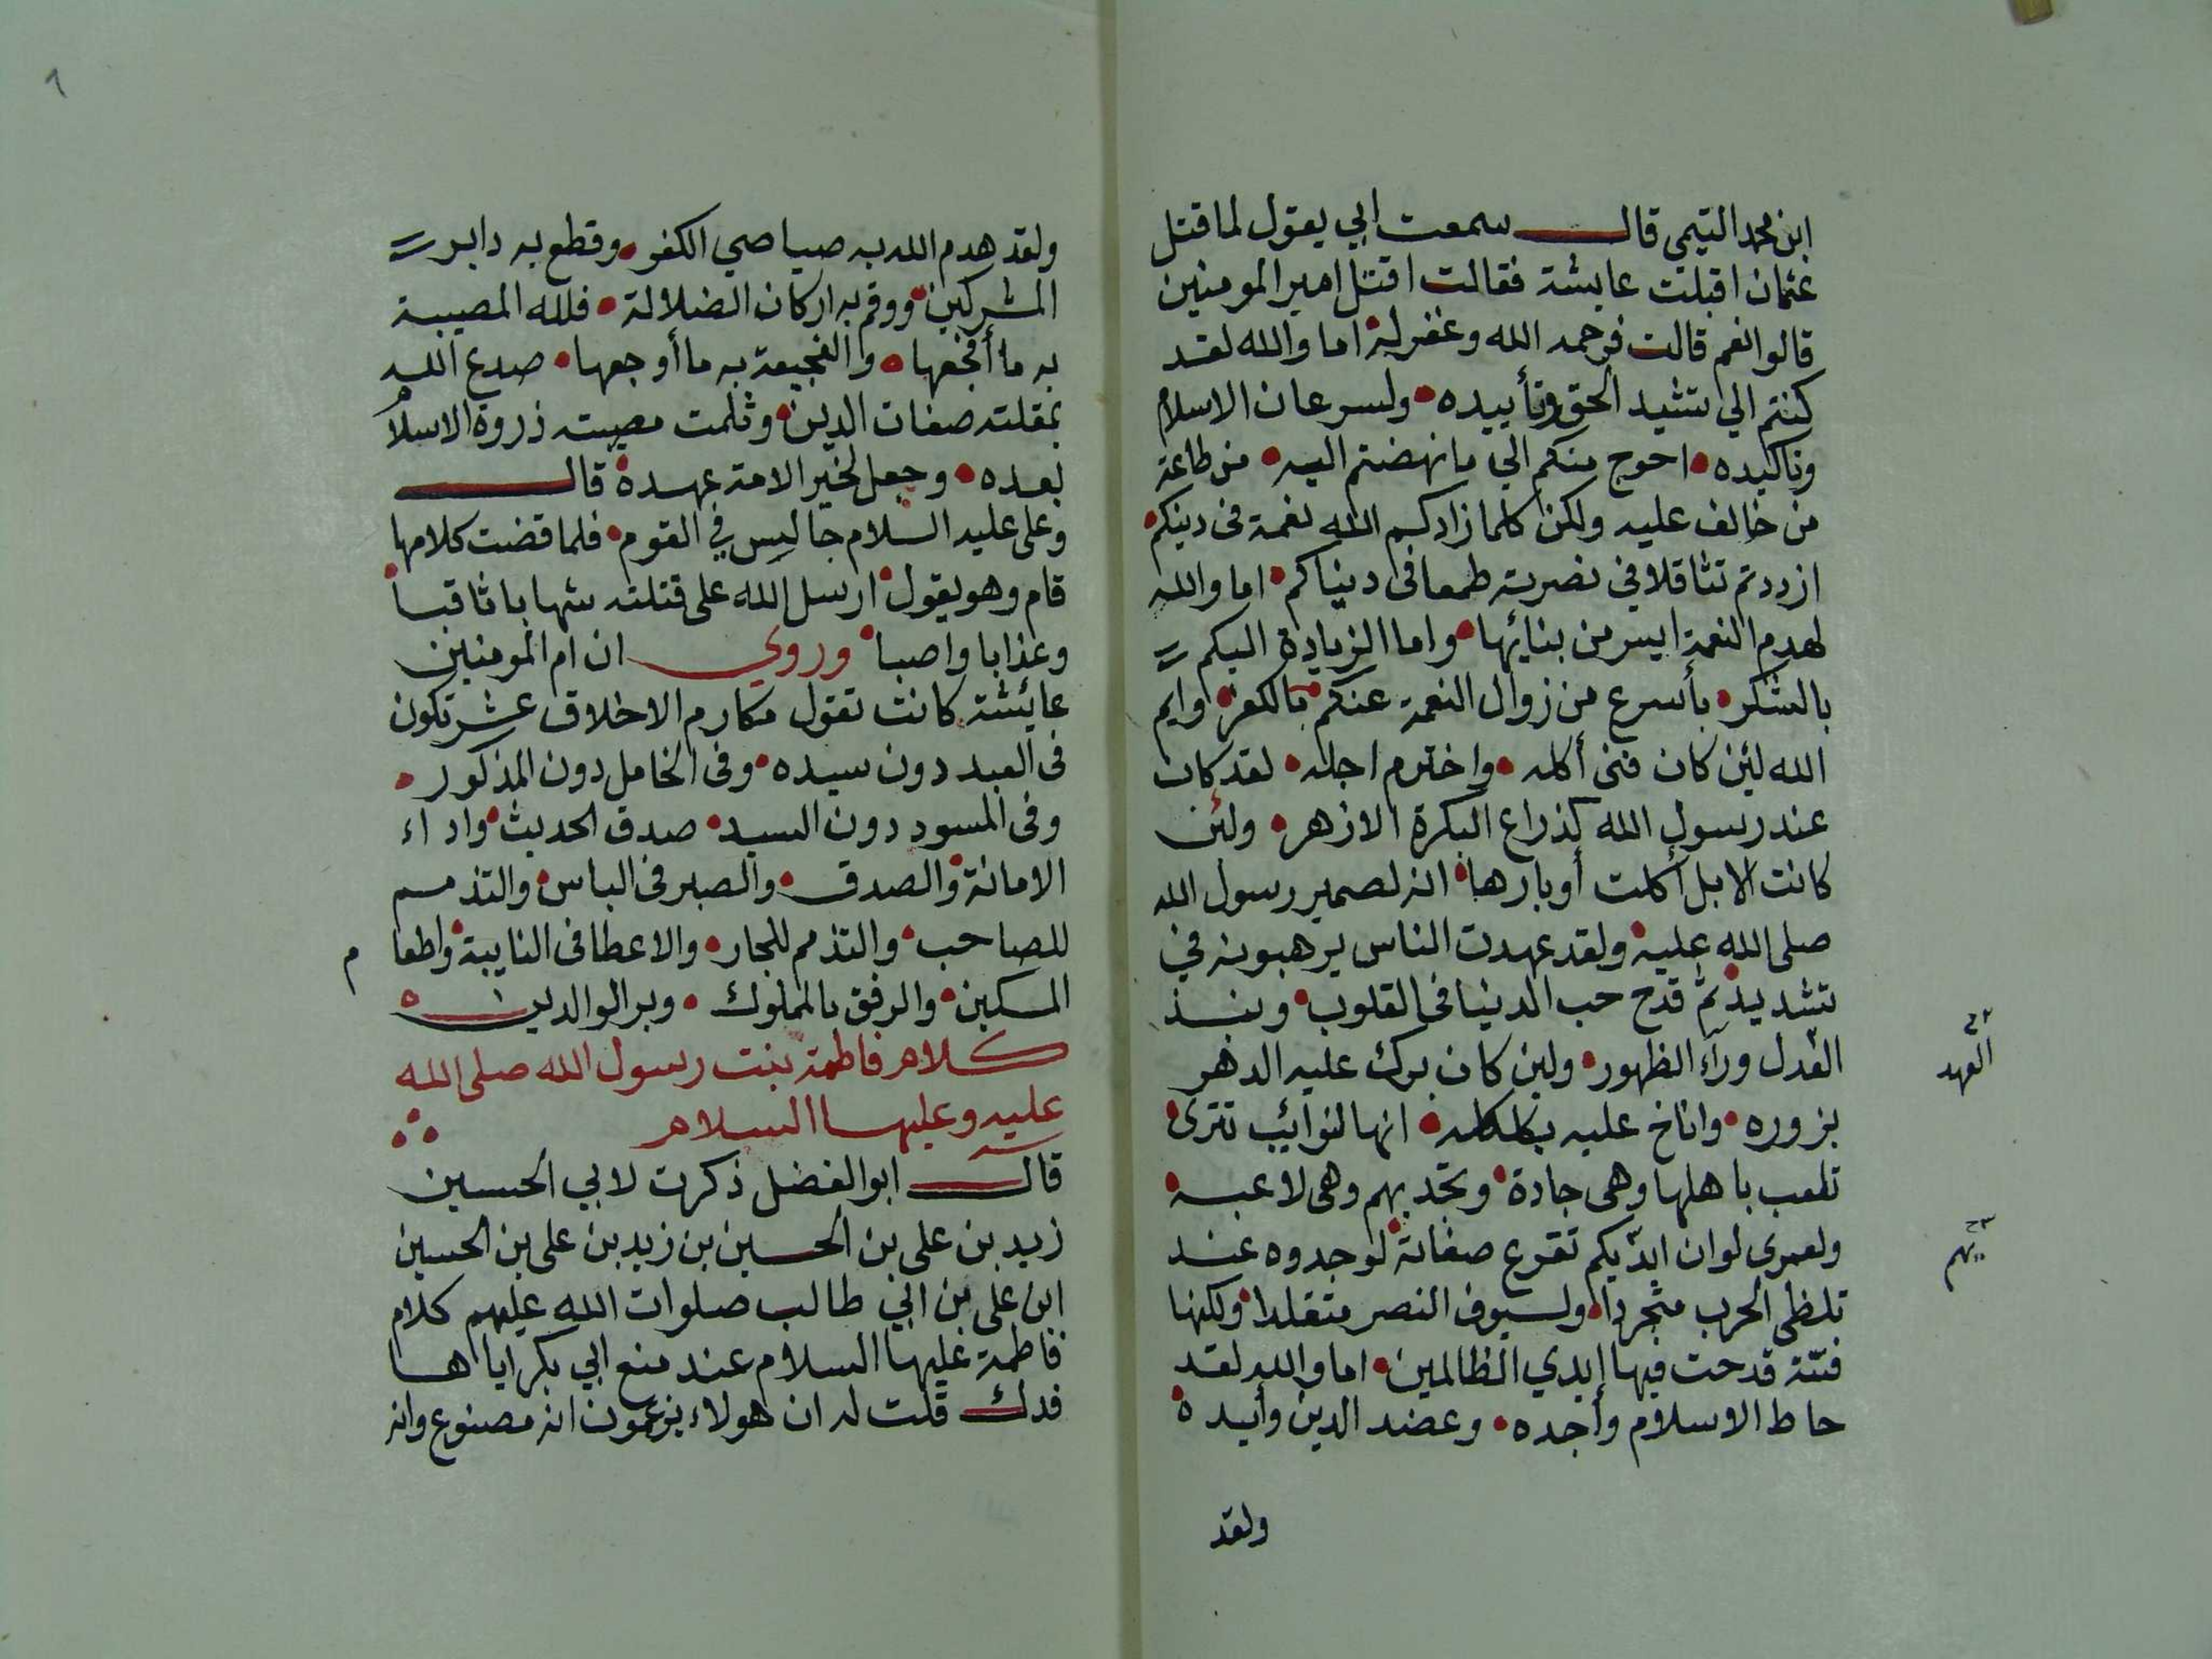 ابن محمد التيمى قال سمعت ابي يقول لما قتل
عثمان اقبلت عايشة فقالت اقتل امير المومنين
قالوا نعم قالت فرحمه الله وغفر له اما والله لقد
كنتم الي تشيد الحق وتأييده ولسرعان الاسلام
وتاكيده احوج منكم الي ما نهضتم اليه من طاعة
من خالف عليه ولكن كلما زادكم الله نعمة فى دينكم
ازددتم تثاقلا في نصرته طمعا فى دنياكم اما والله
لهدم النعمة ايسر من بنائها واما الزيادة اليكم
بالشكر بأسرع من زوال النعمة عنكم بالكفر وايم
الله لئن كان فنى أكله واخترم اجله لقد كان
عند رسول الله كذراع البكرة الازهر ولئن
كانت الابل أكلت أوبارها انه لصهير رسول الله
صلى الله عليه ولقد عهدت الناس يرهبونه في
تشديد ثم قدح حب الدنيا فى القلوب ونبذ
العدل ورآء الظهور ولين كان برك عليه الدهر
بزوره واناخ عليه بكلكله انها لنوائب تترى
تلعب باهلها وهى جادة وتجد بهم وهى لاعبه
ولعمرى لوان ايديكم تقرع صفاته لوجدوه عند
تلظى الحرب متجردا ولسيوف النصر متقلدا ولكنها
فتنة قدحت فيها إيدي الظالمين اما والله لقد
حاط الاسلام وأجده وعضد الدين وأيده
ولقد
العهد
يهم
ولقد هدم الله به صياصي الكفر وقطع به دابر
المشركين ووقم به اركان الضلالة فلله المصيبة
به ما أفجعها والفجيعة به ما أوجعها صدع الله
بمقلته صفات الدين وثلمت مصيبته ذروة الاسلام
بعده وجعل لخير الامة عهده قال
وعلى عليه السلام جالس في القوم فلما قضت كلامها
قام وهو يقول ارسل الله على قتلته شهابا ثاقبا
وعذابا واصبا وروي ان ام المومنين
عائشة كانت تقول مكارم الاخلاق عشر تكون
فى العبد دون سيده وفى الخامل دون المذكور
وفى المسود دون السيد صدق الحديث واداء
الامانة والصدق والصبر فى الباس والتذمم
للصاحب والتذمم للجار والاعطا فى النايبة واطعام
المسكين والرفق بالمملوك وبر الوالدين
كلام فاطمة بنت رسول الله صلى الله
عليه وعليها السلام
قال ابو الفضل ذكرت لابي الحسين
زيد بن على بن الحسين بن زيد بن على بن الحسين
ابن على بن ابي طالب صلوات الله عليهم كلام
فاطمة عليها السلام عند منع ابي بكر اياها
فدك قلت له ان هولاء يزعمون انه مصنوع وانه